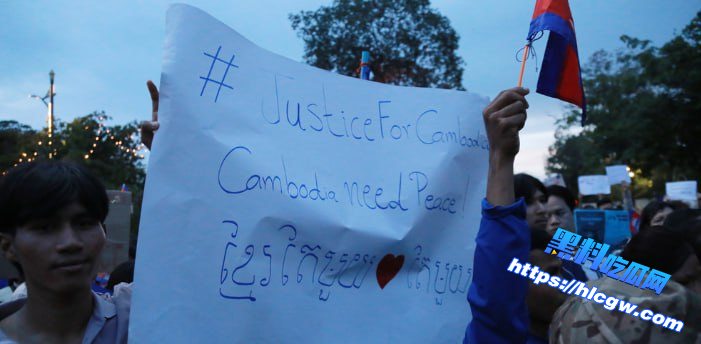 # JusticeForCambodia
Cambodia need Peace!
ខ្មែរតែមួយ ♥ តែមួយ
黑料吃瓜网
https://hlcgw.com